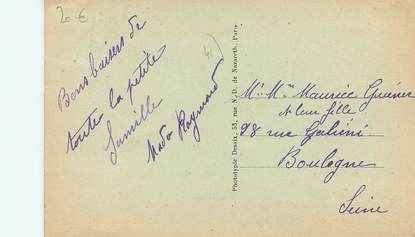 20 €
Bons baisers de
toute la petite
famille
Mado Raymond
Phototypie Dessix, 53, rue N.-D. de Nazareth, Paris
Mr Mme Maurice
& leur fille
98 rue Galiéni
Boulogne
Seine